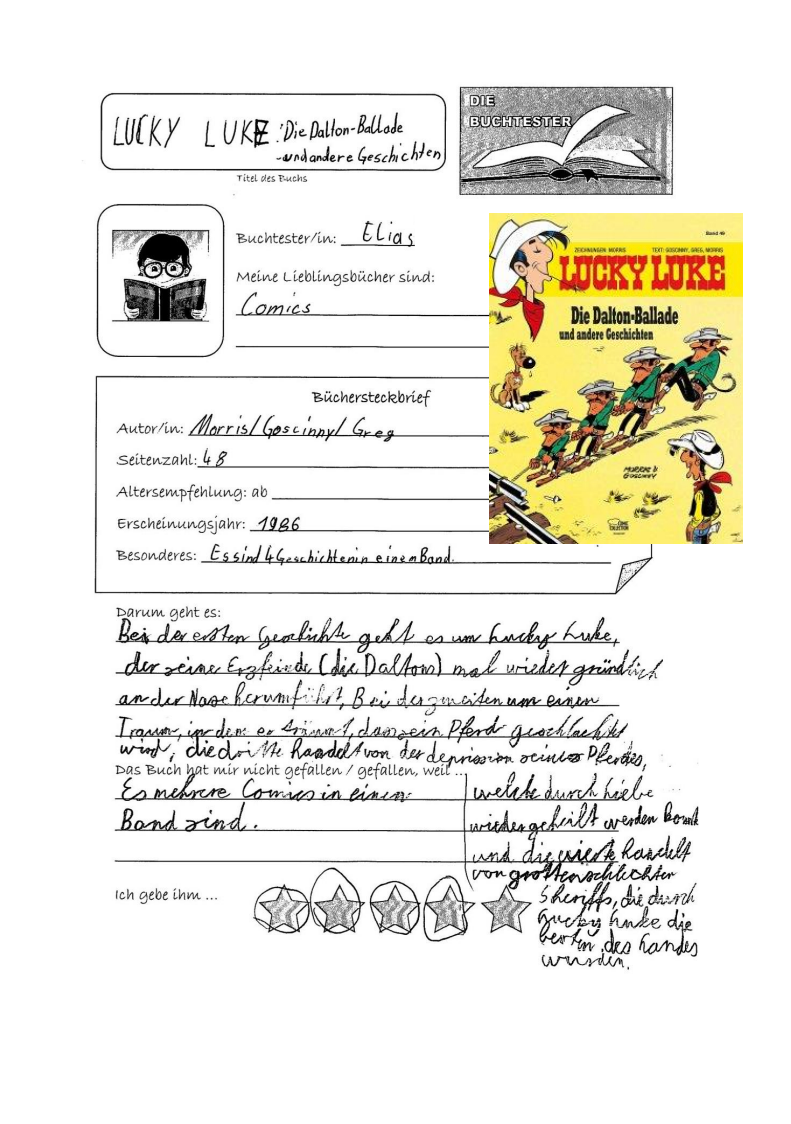 LUCKY LUKE : Die Dalton-Ballade
-und andere Geschichten
Titel des Buchs
DIE
BUCHTESTER
Buchtester/in: Elias
Meine Lieblingsbücher sind:
Comics
Band 49
ZEICHNUNGEN: MORRIS TEXT: GOSCINNY, GREG, MORRIS
LUCKY LUKE
Die Dalton-Ballade
und andere Geschichten
MORRIS &
GOSCINNY
Büchersteckbrief
Autor/in: Morris/Goscinny/Greg
Seitenzahl: 48
Altersempfehlung: ab
Erscheinungsjahr: 1986
Besonderes: Es sind 4 Geschichten in einem Band.
Darum geht es:
Bei der ersten Geschichte geht es um Lucky Luke,
der seine Erzfeinde (die Daltons) mal wieder gründlich
an der Nase herumführt, Bei der zweiten um einen
Traum, in dem er träumt, dass ein Pferd geschlachtet
wird, die dritte handelt von der depression seines Pferdes,
Das Buch hat mir nicht gefallen / gefallen, weil ...
Es mehrere Comics in einem
Band sind.
welche durch Liebe
wieder geheilt werden konnte
und die vierte handelt
von großten schlechten
Sheriffs, die durch
Lucky Luke die
besten des Landes
wurden.
Ich gebe ihm ...